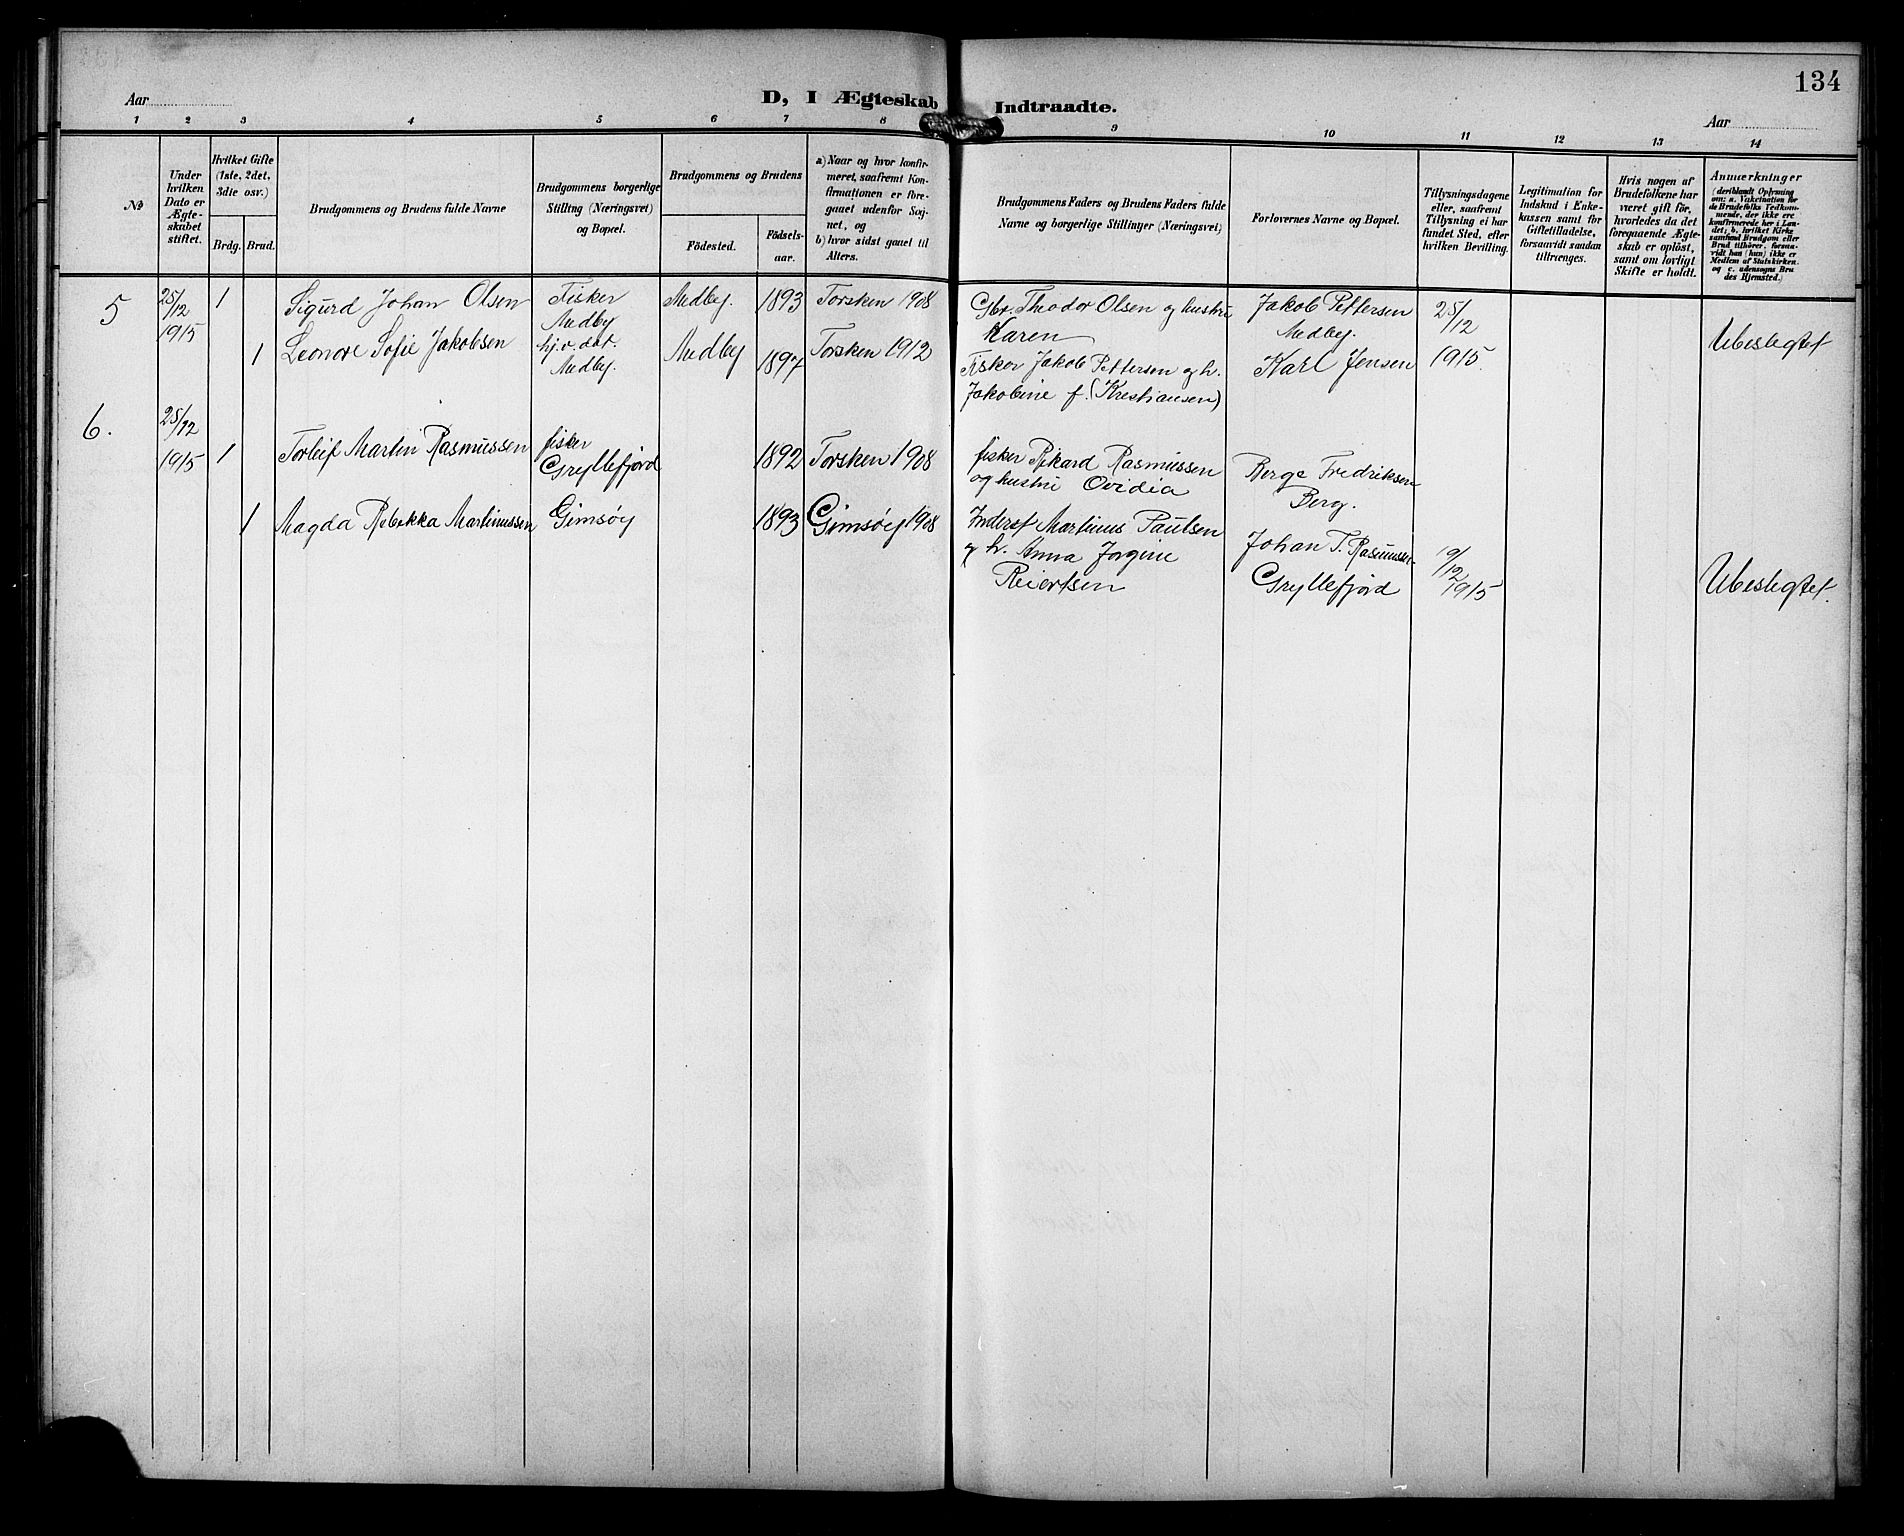 134
Aar
D, I Ægteskab Indtraadte.
Aar
1 2 3 4 5 6 7 8 9 10 11 12 13 14
№
Under
hvilken
Dato er
Ægte-
skabet
stiftet.
Hvilket Gifte
(1ste, 2det,
3die osv.)
Brdg. Brud.
Brudgommens og Brudens fulde Navne
Brudgommens borgerlige
Stilling (Næringsvei)
og Bopæl.
Brudgommens og Brudens
Födested.
Födsels-
aar.
a) Naar og hvor konfir-
meret, saafremt Kon-
firmationen er fore-
gaaet udenfor Sog-
net, og
b) hvor sidst gaaet til
Alters.
Brudgommens Faders og Brudens Faders fulde
Navne og borgerlige Stillinger (Næringsvei)
Forlovernes Navne og Bopæl.
Tillysningsdagene
eller, saafremt
Tillysning ei har
fundet Sted, efter
hvilken Bevilling.
Legitimation for
Indskud i Enke-
kassen samt for
Giftetilladelse,
forsaavidt saadan
tiltrænges.
Hvis nogen af
Brudefolkene har
været gift för,
hvorledes da det
foregaaende Ægte-
skab er oplöst,
samt om lovligt
Skifte er holdt.
Anmærkninger
(deriblandt Oplysning
om: a. Vakcination for
de Brudefolks Vedkom-
mende, der ikke ere
konfirmerede her i Lan-
det; b. hvilket Kirke
samfund Brudgom eller
Brud tilhörer, forsaa-
vidt han (hun) ikke er
Medlem af Statskirken.
og c. udensogns Bru
des Hjemsted.)
5
25/12
1915
1
Sigurd Johan Olsen
Fisker
Medby
Medby.
1893
Torsken 1908
Gbr. Theodor Olsen og hustru
Karen
Jakob Pettersen
Medby.
25/12
1915.
Ubeslegtet
1
Leonore Sofie Jakobsen
hj.v. det.
Medby.
Medby
1897
Torsken 1912
Fisker Jakob Pettersen og h.
Jakobine f. (Kristiansen)
Karl Jensen
6.
25/12
1915
1
Torleif Martin Rasmussen
fisker
Gryllefjord
1892
Torsken 1908
fisker Rikard Rasmussen
og hustru Ovidia
Berge Fredriksen
Berg.
1
Magda Rebekka Martinussen
Gimsøy
1893
Gimsøy 1908
Inderst Martinus Paulsen
og h. Anna Jorgine
Reiertsen
Johan T. Rasmussen
Gryllefjord
9/12
1915
Ubeslegtet.